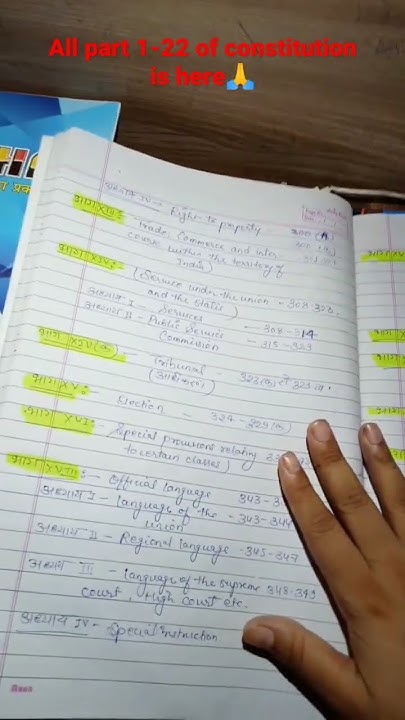 All part 1-22 of constitution
is here🙏
अध्याय IV - Right to property - 300 (A)
भाग XIII:- Trade, Commerce and inter
course within the territory of
India)
भाग XIV:- (Service under the union
and the state) - 308-323
अध्याय I - Services - 308-314
अध्याय II - Public Service - 315-323
Commission
भाग XIV(क) - Tribunal - 323(क) से 323 ख
भाग XV:- Election - 324-329(क)
भाग XVI:- (Special provisions relating
to certain classes)
भाग XVII:- Official language 343-3
अध्याय I - language of the - 343-344
union
अध्याय II - Regional language - 345-347
अध्याय III - language of the supreme 348-349
court, High court etc.
अध्याय IV - Special instruction
भाग XV